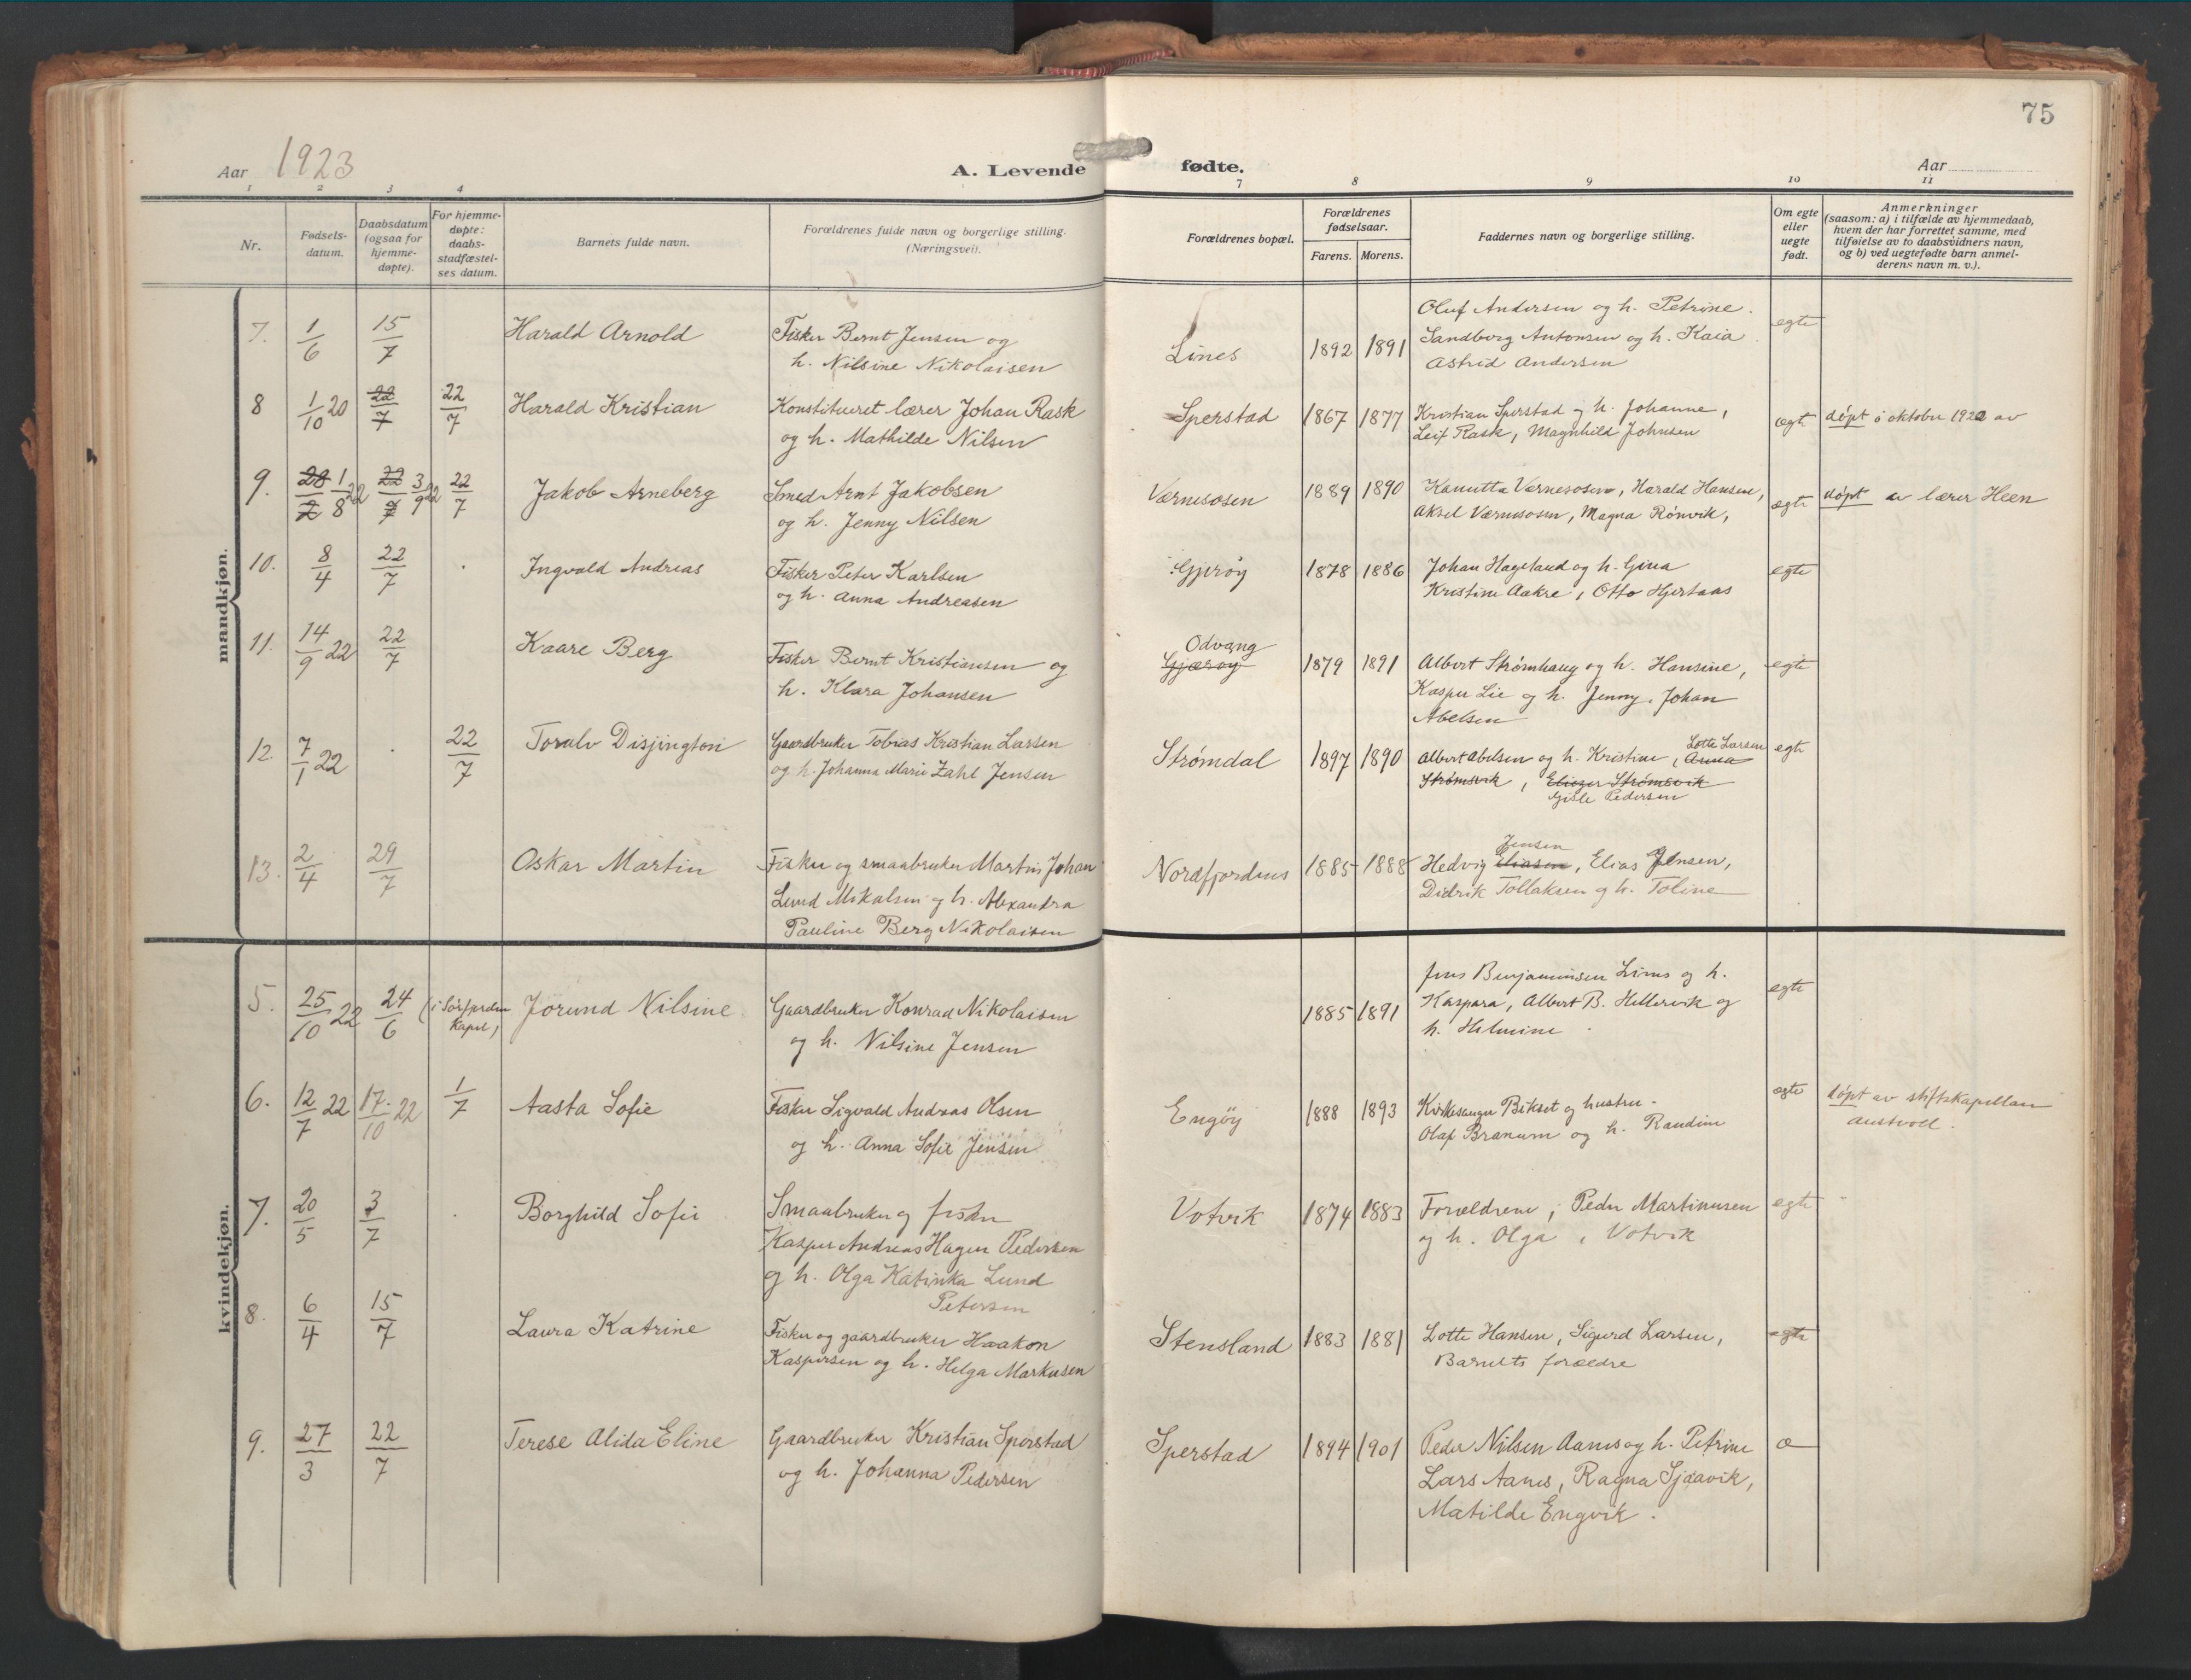 75
Aar 1923
A. Levende fødte.
Aar
1 2 3 4 7 8 9 10 11
Nr.
Fødsels-
datum.
Daabsdatum
(ogsaa for
hjemme-
døpte).
For hjemme-
døpte:
daabs-
stadfæstel-
ses datum.
Barnets fulde navn.
Forældrenes fulde navn og borgerlige stilling.
(Næringsvei).
Forældrenes bopæl.
Forældrenes
fødselsaar.
Farens. Morens.
Faddernes navn og borgerlige stilling.
Om egte
eller
uegte
født.
Anmerkninger
(saasom: a) i tilfælde av hjemmedaab,
hvem der har forrettet samme, med
tilføielse av to daabsvidners navn,
og b) ved uegtefødte barn anmel-
derens navn m. v.).
mandkjøn.
7. 1/6 15/7 Harald Arnold Fisker Bernt Jensen og
h. Nilsine Nikolaisen
Lines 1892 1891
Oluf Andersen og h. Petrine.
Sandberg Antonsen og h. Kaia
Astrid Andersen
egte
8 1/10 20 22/7 22/7 Harald Kristian Konstitueret lærer Johan Rask
og h. Mathilde Nilsen
Sperstad 1867 1877 Kristian Sperstad og h. Johanne,
Leif Rask, Magnhild Johnsen
egte døpt i oktober 1920 av
9. 28/2 1/8 22 22/7 3/9 22 22/7 Jakob Arneberg Smed Arnt Jakobsen
og h. Jenny Nilsen
Værnesosen 1889 1890 Kanutta Værnesosen, Harald Hansen,
Aksel Værnesosen, Magna Rønvik,
egte døpt av lærer Heen
10. 8/4 22/7 Ingvald Andreas Fisker Peter Karlsen
og h. Anna Andreasen
Gjerøy 1878 1886 Johan Hageland og h. Gina
Kristine Aakre, Otto Hjertaas
egte
11. 14/9 22 22/7 Kaare Berg Fisker Bernt Kristiansen og
h. Klara Johansen
Odvang
Gjærøy 1879 1891 Albert Strømhaug og h. Hansine,
Kasper Lie og h. Jenny, Johan
Abelsen
egte
12. 7/1 22 22/7 Toralv Disjington Gaardbruker Tobias Kristian Larsen
og h. Johanna Marie Zahl Jensen
Strømdal 1897 1890 Albert Abelsen og h. Kristine, Lotte Larsen Anna
Strømsvik, Eliezer Strømsvik
Gisle Pedersen
egte
13. 2/4 29/7 Oskar Martin Fisker og smaabruker Martin Johan
Lund Mikalsen og h. Alexandra
Pauline Berg Nikolaisen
Nordfjordnes 1885 1888 Hedvig Eliasen Jensen, Elias Jensen,
Didrik Tollaksen og h. Toline
kvindekjøn.
5. 25/10 22 24/6 (i Sørfjorden
Kapel) Jorund Nilsine Gaardbruker Konrad Nikolaisen
og h. Nilsine Jensen
1885 1891
Jens Benjaminsen Lines og h.
Kaspara, Albert B. Hellervik og
h. Helmine
egte
6. 12/7 22 17/10 22 1/7 Aasta Sofie Fisker Sigvald Andreas Olsen
og h. Anna Sofie Jensen
Engøy 1888 1893 Kirkesanger Bikset og hustru.
Olaf Brænum og h. Randine
egte døpt av stiftskapellan
Austvoll.
7. 20/5 3/7 Borghild Sofie Smaabruker og fisker
Kasper Andreas Hagen Pedersen
og h. Olga Katinka Lund
Petersen
Votvik 1874 1883 Forældrene, Peder Martinusen
og h. Olga, Votvik
egte
8. 6/4 15/7 Laura Katrine Fisker og gaardbruker Haakon
Kaspersen og h. Helga Markusen
Stensland 1883 1881 Lotte Hansen, Sigurd Larsen,
Barnets forældre
egte
9. 27/3 22/7 Terese Alida Eline Gaardbruker Kristian Sperstad
og h. Johanna Pedersen
Sperstad 1894 1901 Peder Nilsen Aanes og h. Petrine
Lars Aanes, Ragna Sjaavik,
Matilde Engvik.